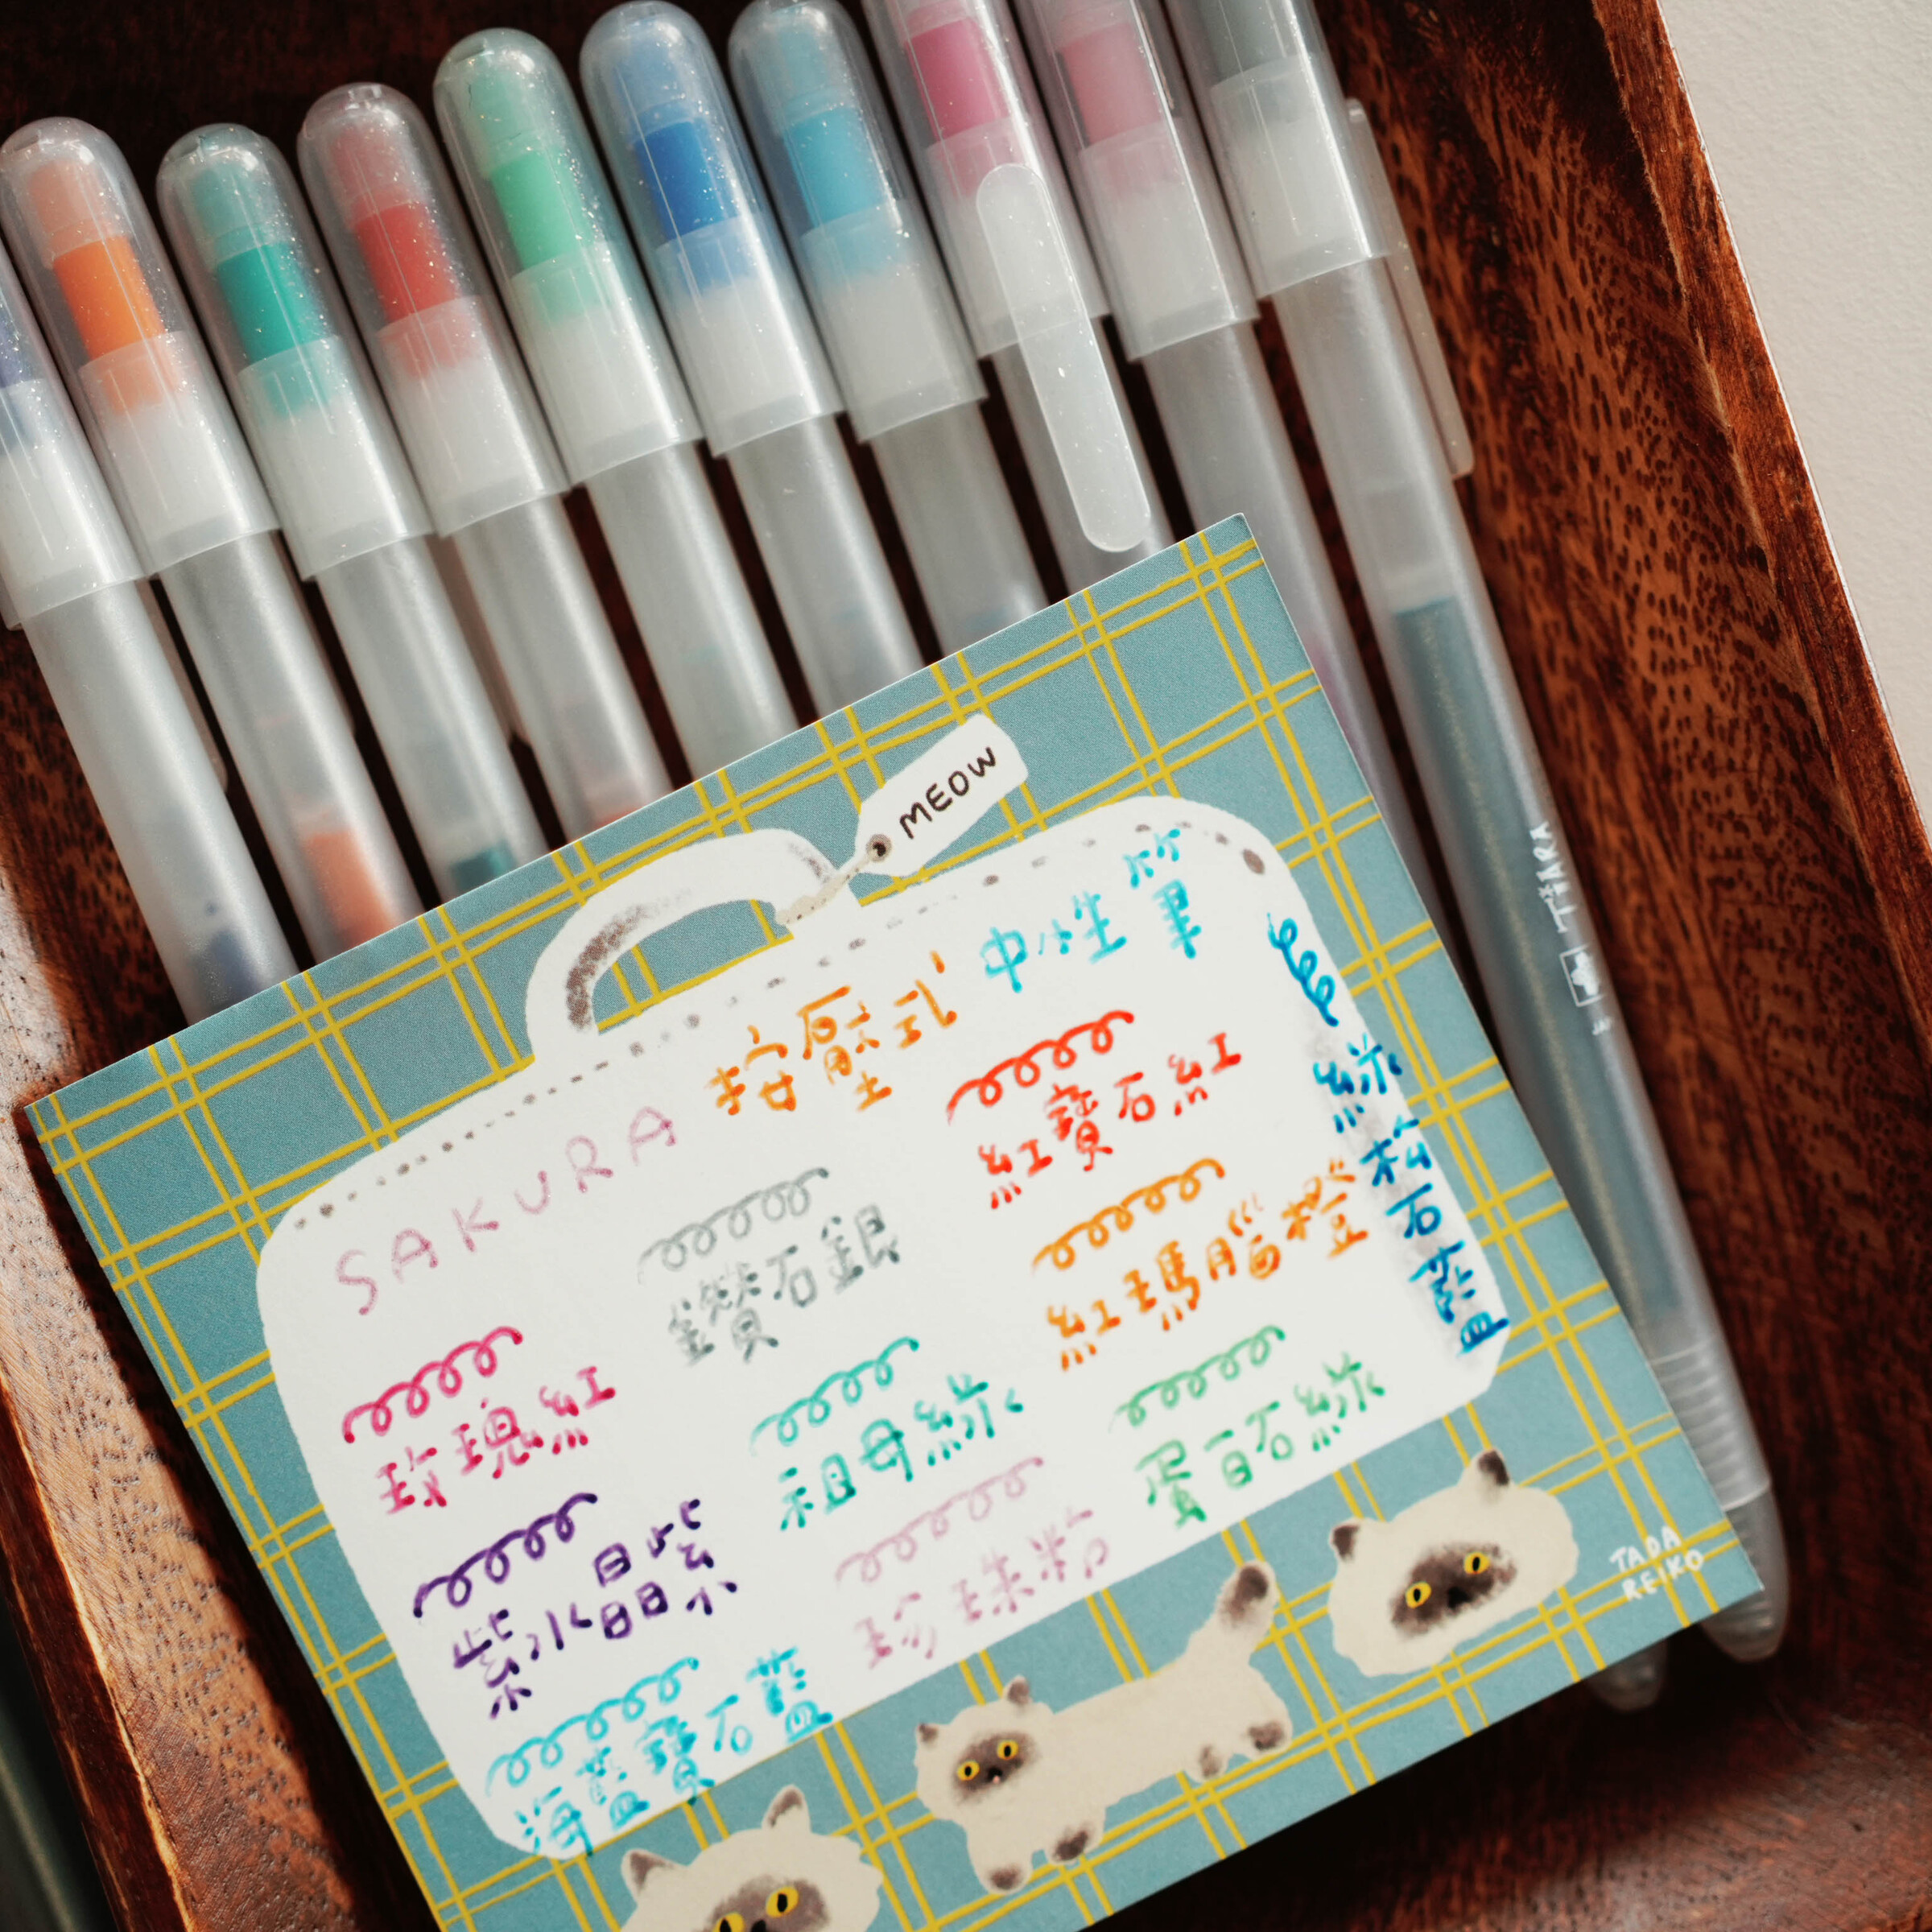 MEOW
SAKURA 按壓式 中性筆
玫瑰紅
紫水晶紫
海藍寶石藍
鑽石銀
祖母綠
珍珠粉
紅寶石紅
紅瑪腦橙
蛋白石綠
綠松石藍
TADA
REIKO
TiARA